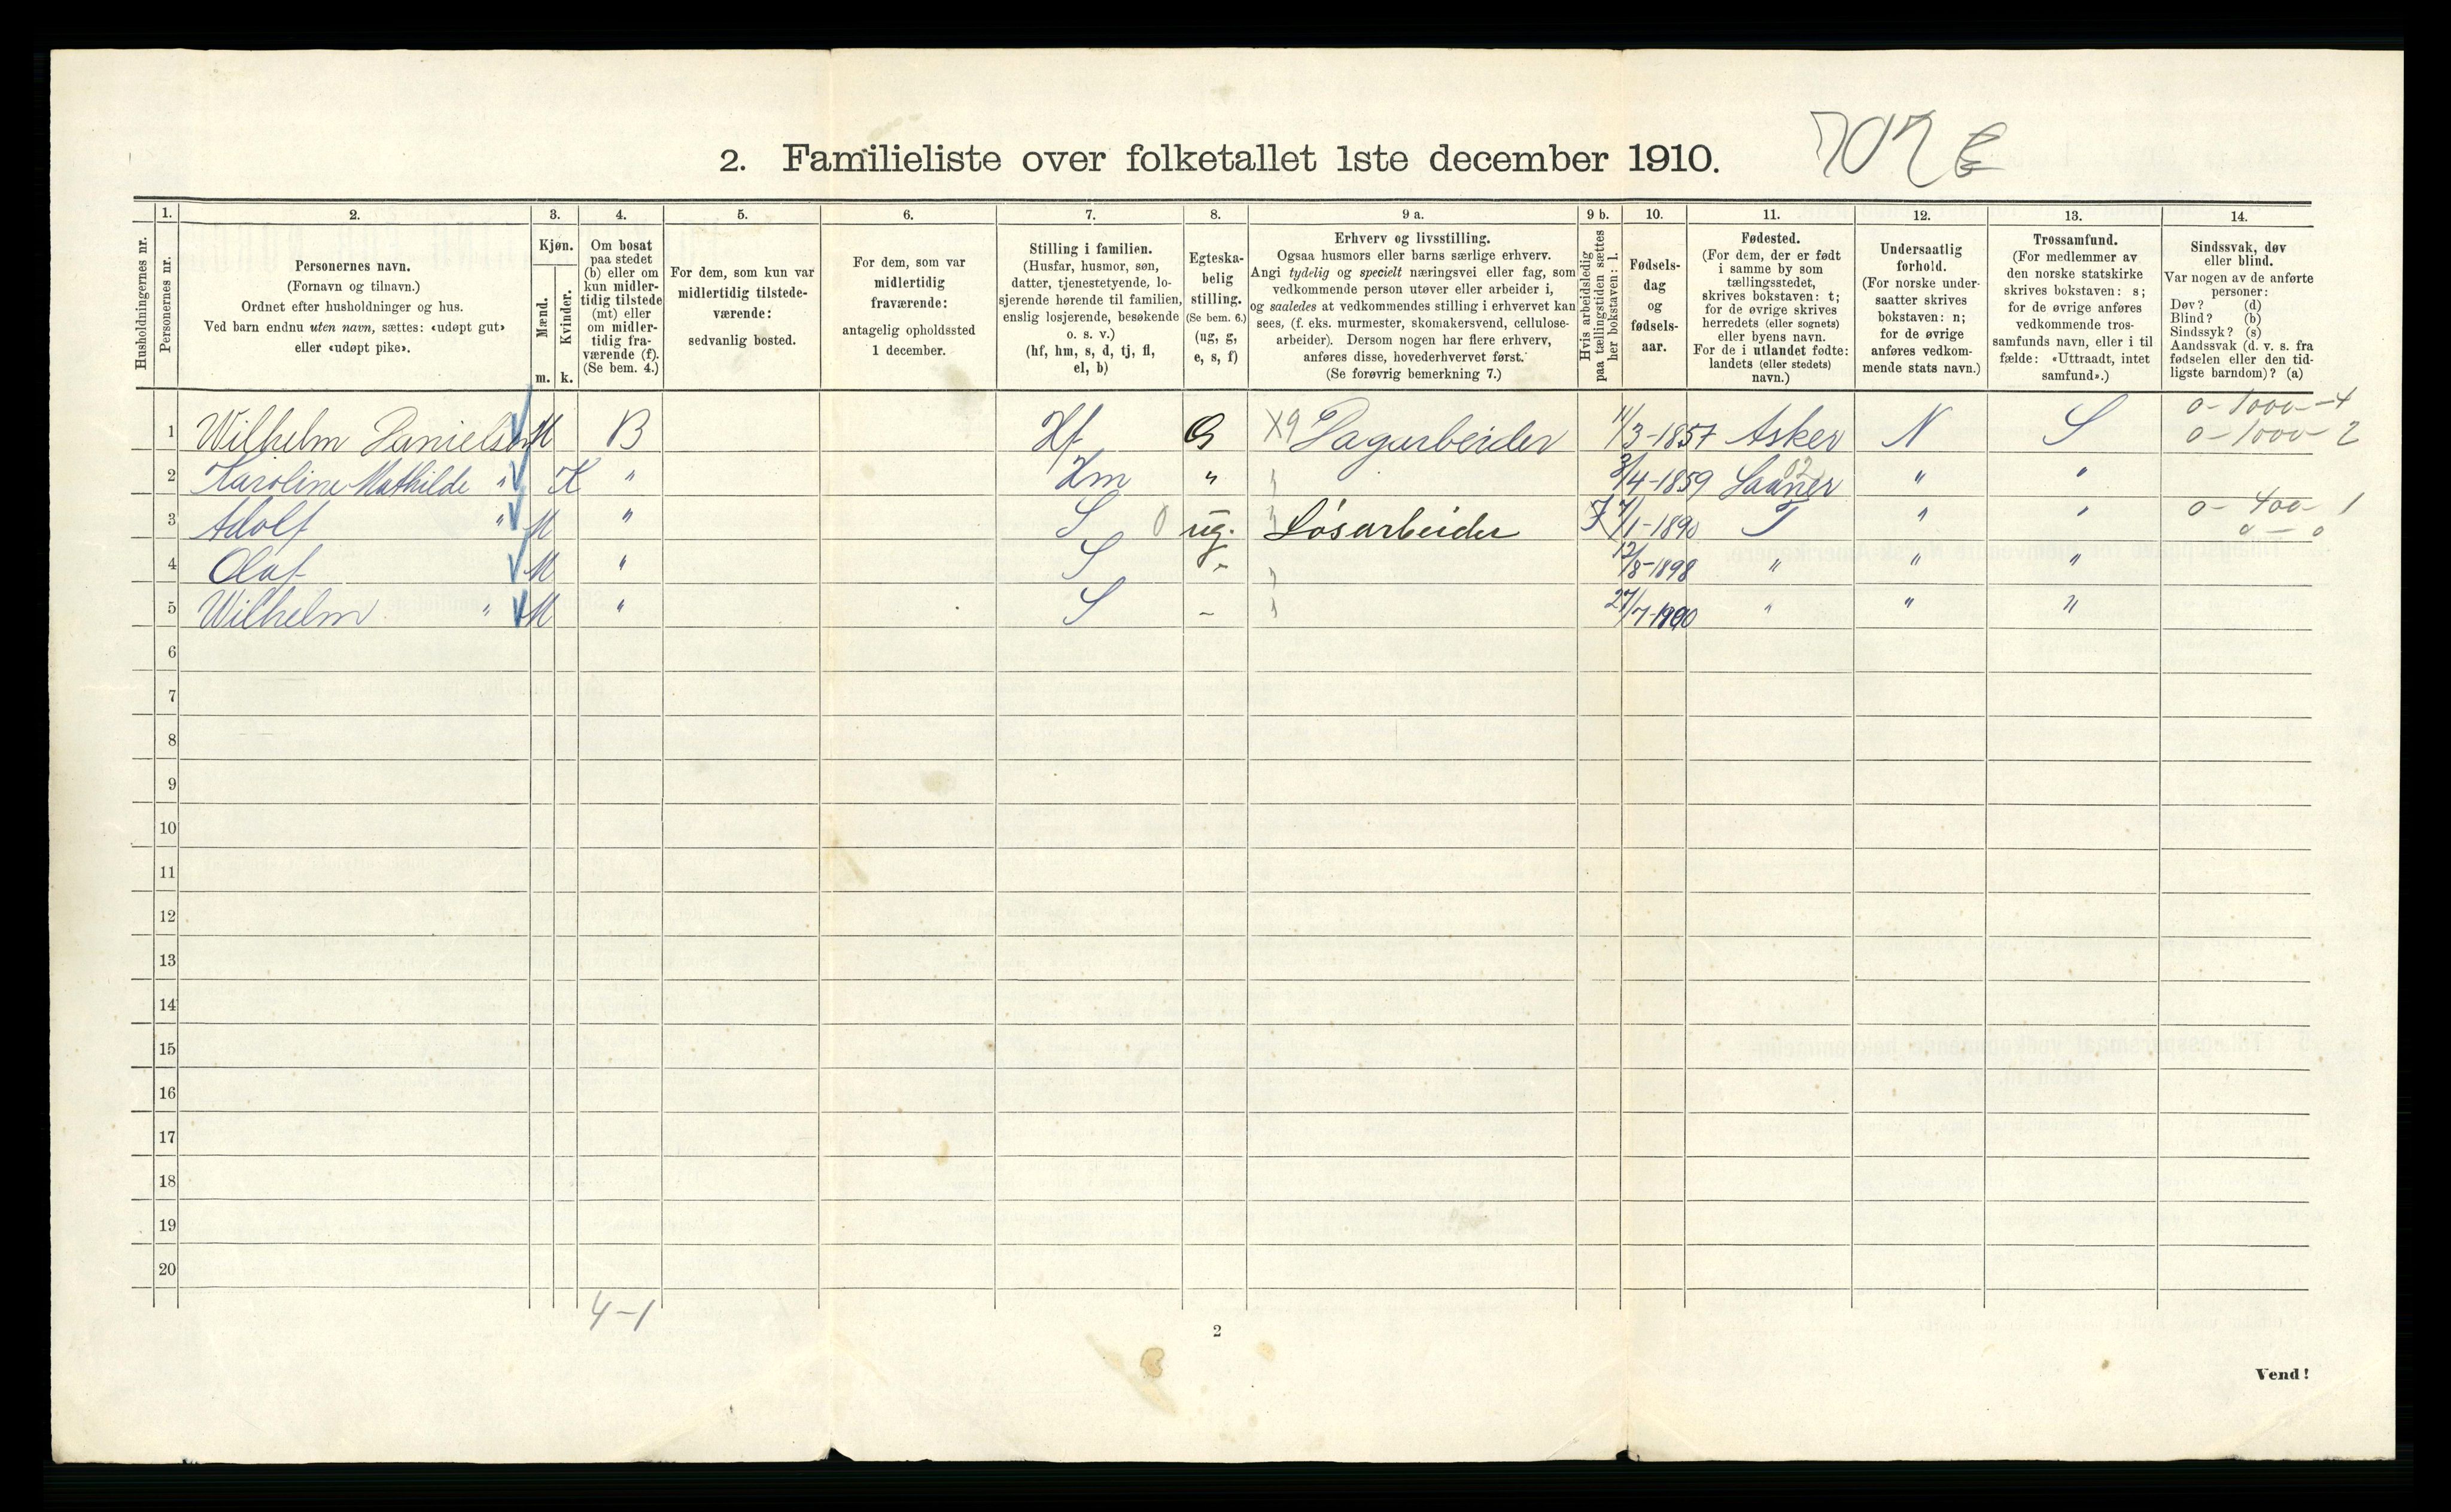 2. Familieliste over folketallet 1ste december 1910.
707
1. 2. 3. 4. 5. 6. 7. 8. 9 a. 9 b. 10. 11. 12. 13. 14.
Husholdningernes nr.
Personernes nr.
Personernes navn.
(Fornavn og tilnavn.)
Ordnet efter husholdninger og hus.
Ved barn endnu uten navn, sættes: «udøpt gut»
eller «udøpt pike».
Kjøn.
Mænd.
Kvinder.
m. k.
Om bosat
paa stedet
(b) eller om
kun midler-
tidig tilstede
(mt) eller
om midler-
tidig fra-
værende (f).
(Se bem. 4.)
For dem, som kun var
midlertidig tilstede-
værende:
sedvanlig bosted.
For dem, som var
midlertidig
fraværende:
antagelig opholdssted
1 december.
Stilling i familien.
(Husfar, husmor, søn,
datter, tjenestetyende, lo-
sjerende hørende til familien,
enslig losjerende, besøkende
o. s. v.)
(hf, hm, s, d, tj, fl,
el, b)
Egteska-
belig
stilling.
(Se bem. 6.)
(ug, g,
e, s, f)
Erhverv og livsstilling.
Ogsaa husmors eller barns særlige erhverv.
Angi tydelig og specielt næringsvei eller fag, som
vedkommende person utøver eller arbeider i,
og saaledes at vedkommendes stilling i erhvervet kan
sees, (f. eks. murmester, skomakersvend, cellulose-
arbeider). Dersom nogen har flere erhverv,
anføres disse, hovederhvervet først.
(Se forøvrig bemerkning 7.)
Hvis arbeidsledig
paa tællingstiden sættes
her bokstaven: l.
Fødsels-
dag
og
fødsels-
aar.
Fødested.
(For dem, der er født
i samme by som
tællingsstedet,
skrives bokstaven: t;
for de øvrige skrives
herredets (eller sognets)
eller byens navn.
For de i utlandet fødte:
landets (eller stedets)
navn.)
Undersaatlig
forhold.
(For norske under-
saatter skrives
bokstaven: n;
for de øvrige
anføres vedkom-
mende stats navn.)
Trossamfund.
(For medlemmer av
den norske statskirke
skrives bokstaven: s;
for de øvrige anføres
vedkommende tros-
samfunds navn, eller i til
fælde: «Uttraadt, intet
samfund».)
Sindssvak, døv
eller blind.
Var nogen av de anførte
personer:
Døv? (d)
Blind? (b)
Sindssyk? (s)
Aandssvak (d. v. s. fra
fødselen eller den tid-
ligste barndom)? (a)
0 - 1000 - 4
1 Wilhelm Danielsen M B Hf G X9 Dagarbeider 11/3-1857 Asker N S 0 - 1000 - 2
2 Karoline Mathilde " K " Hm " 3/4-1859 " "
3 Adolf " M " S 0 ug. Løsarbeider 7/1-1890 T " " 0 - 400 - 1
0 - 0
4 Olaf M " S " 12/8-1898 " " "
5 Wilhelm " M " S - 27/7-1900 " " "
6
7
8
9
10
11
12
13
14
15
16
17
18
19
20
4-1
2
Vend!